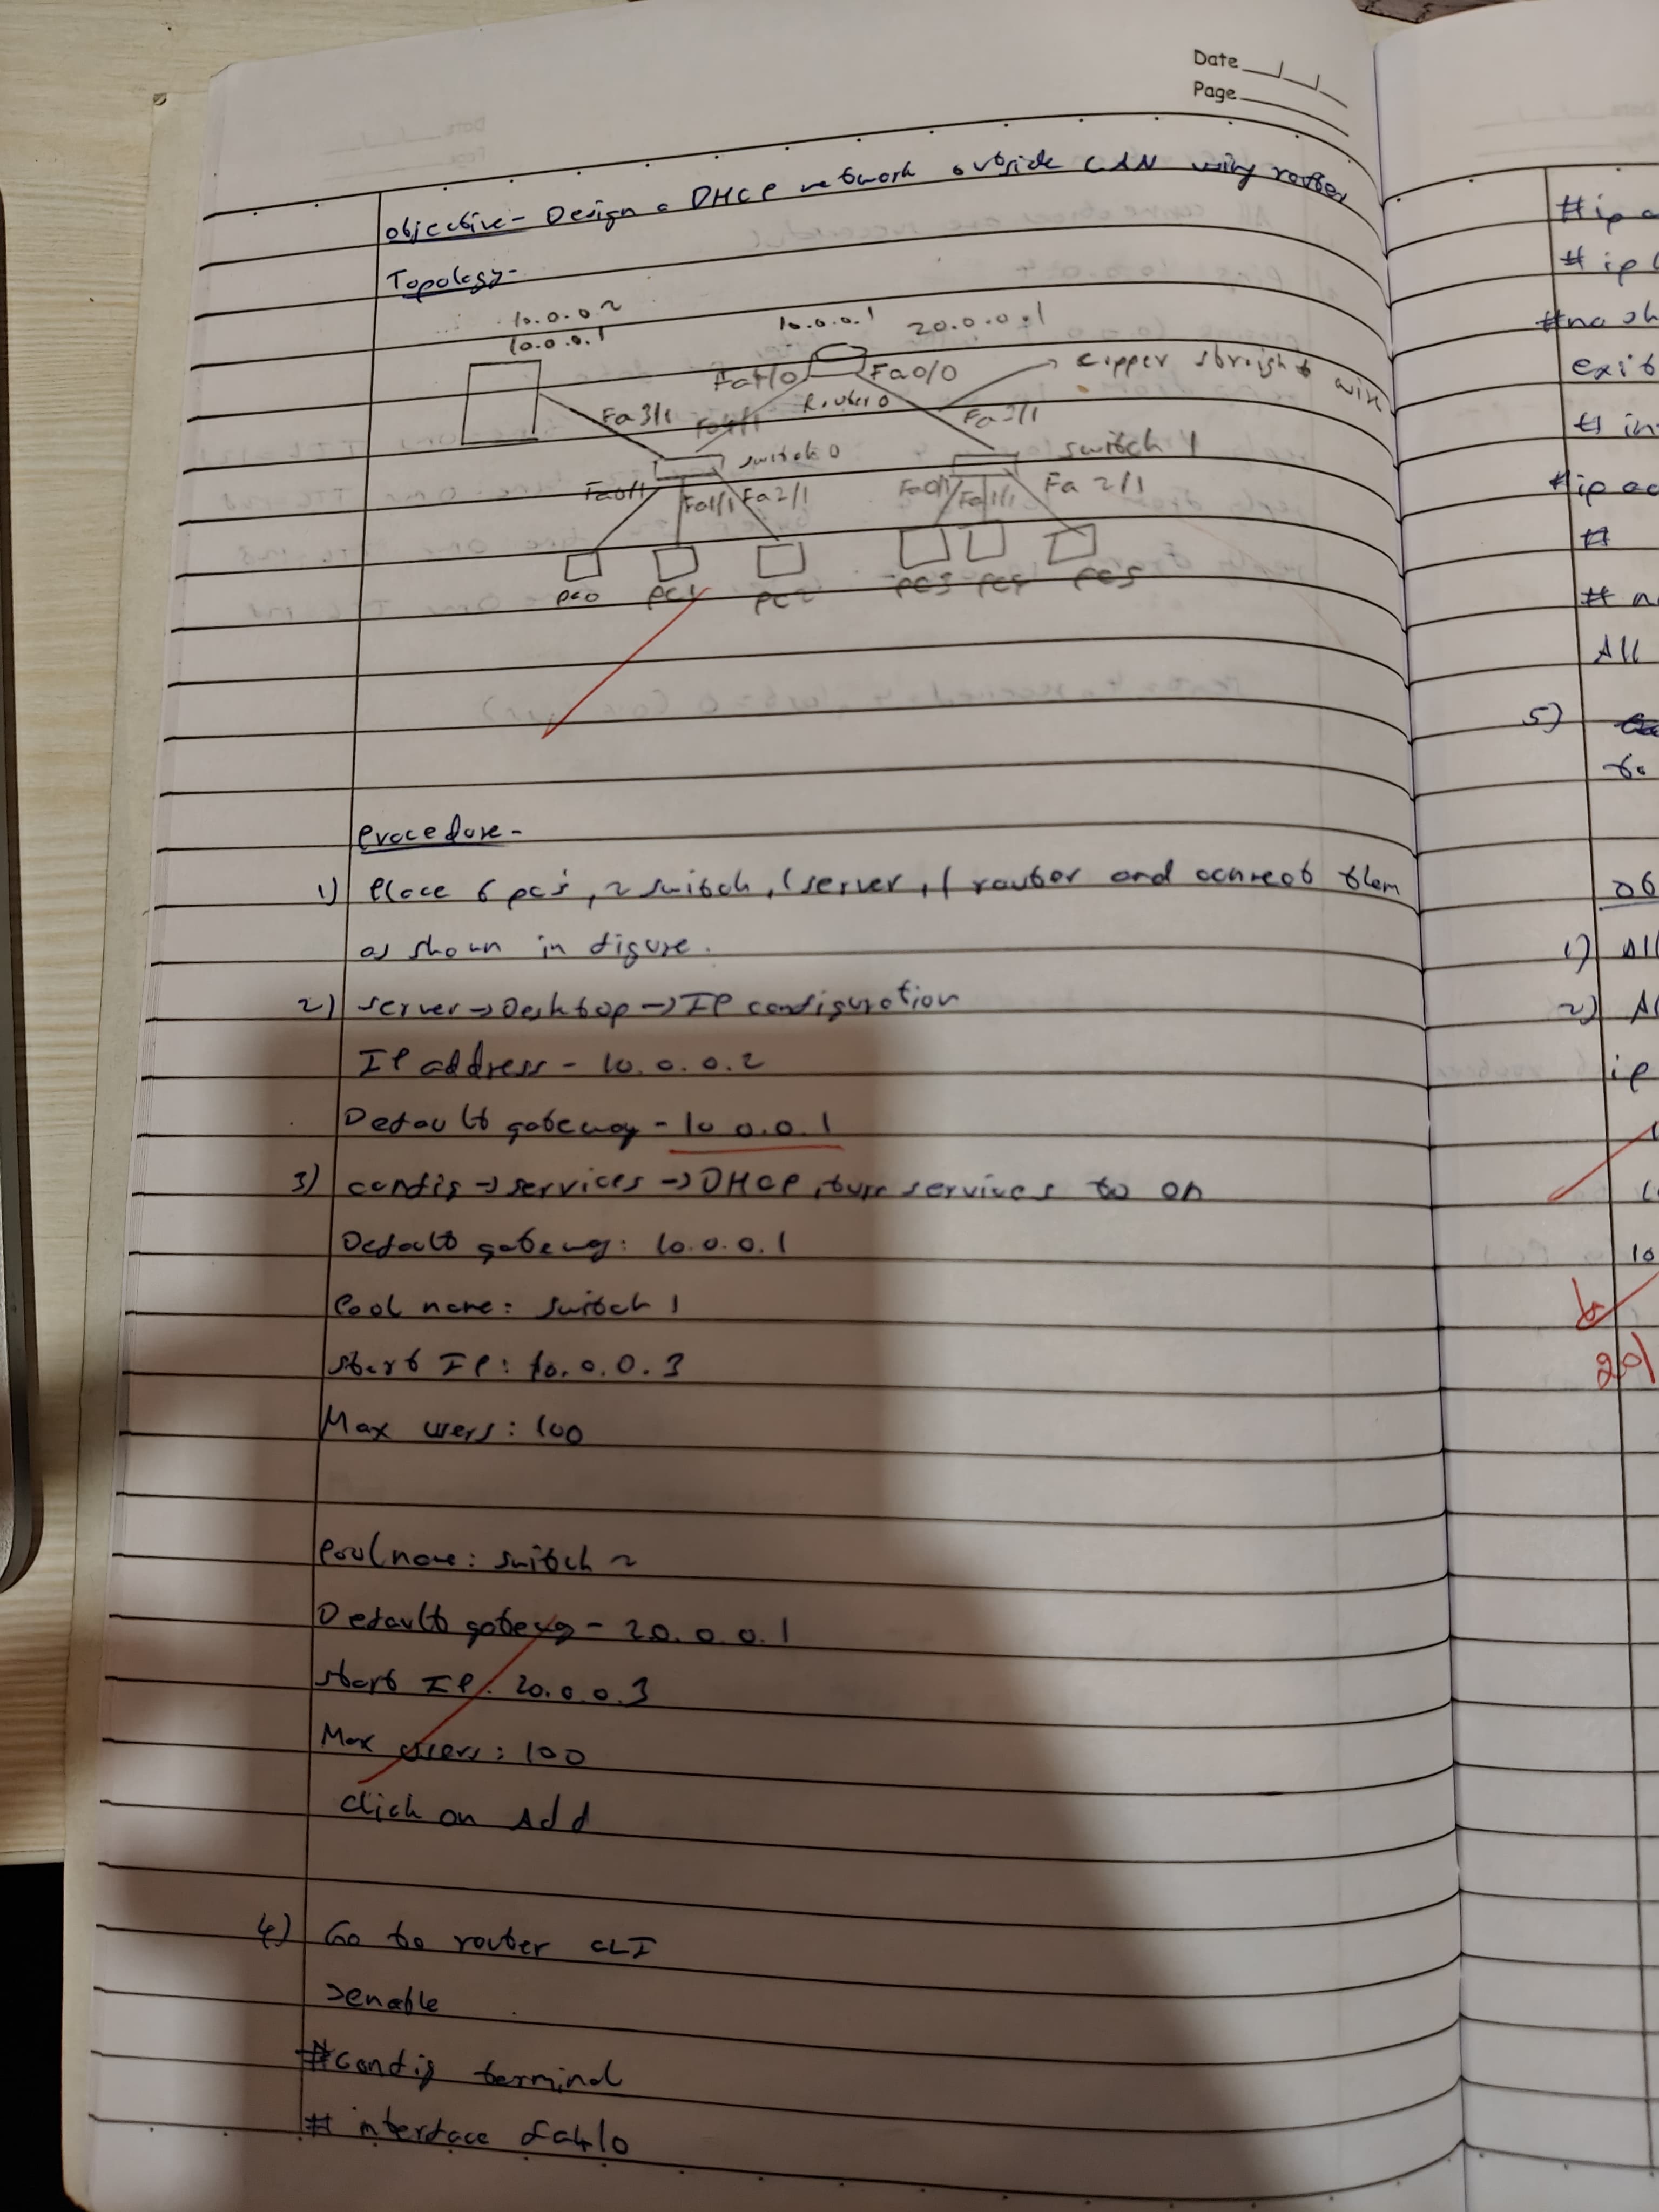 Date
Page
Objective - Design a DHCP network outside LAN using router
Topology -
10.0.0.2
10.0.0.1
10.0.0.1
20.0.0.1
Fa4/0
Fa0/0
copper straight wire
Router 0
Fa3/1
Fa4/1
Fa3/1
switch 0
switch 1
Fa0/1
Fa1/1
Fa2/1
Fa0/1
Fa1/1
Fa 2/1
PC0
PC1
PC2
PC3
PC4
PC5
Procedure -
1) Place 6 pc's, 2 switch, 1 server, 1 router and connect them
as shown in figure.
2) server → Desktop → IP configuration
IP address - 10.0.0.2
Default gateway - 10.0.0.1
3) config → services → DHCP, turn services to on
Default gateway: 10.0.0.1
Pool name: switch 1
start IP: 10.0.0.3
Max users: 100
Pool name: switch 2
Default gateway - 20.0.0.1
start IP: 20.0.0.3
Max users: 100
click on Add
4) Go to router CLI
>enable
#config terminal
# interface fa4/0
#ip
# ip
#no sh
exit
# in
#ip ad
#
# n
All
5)
to
ob
1) All
2) Al
ip
10
20/